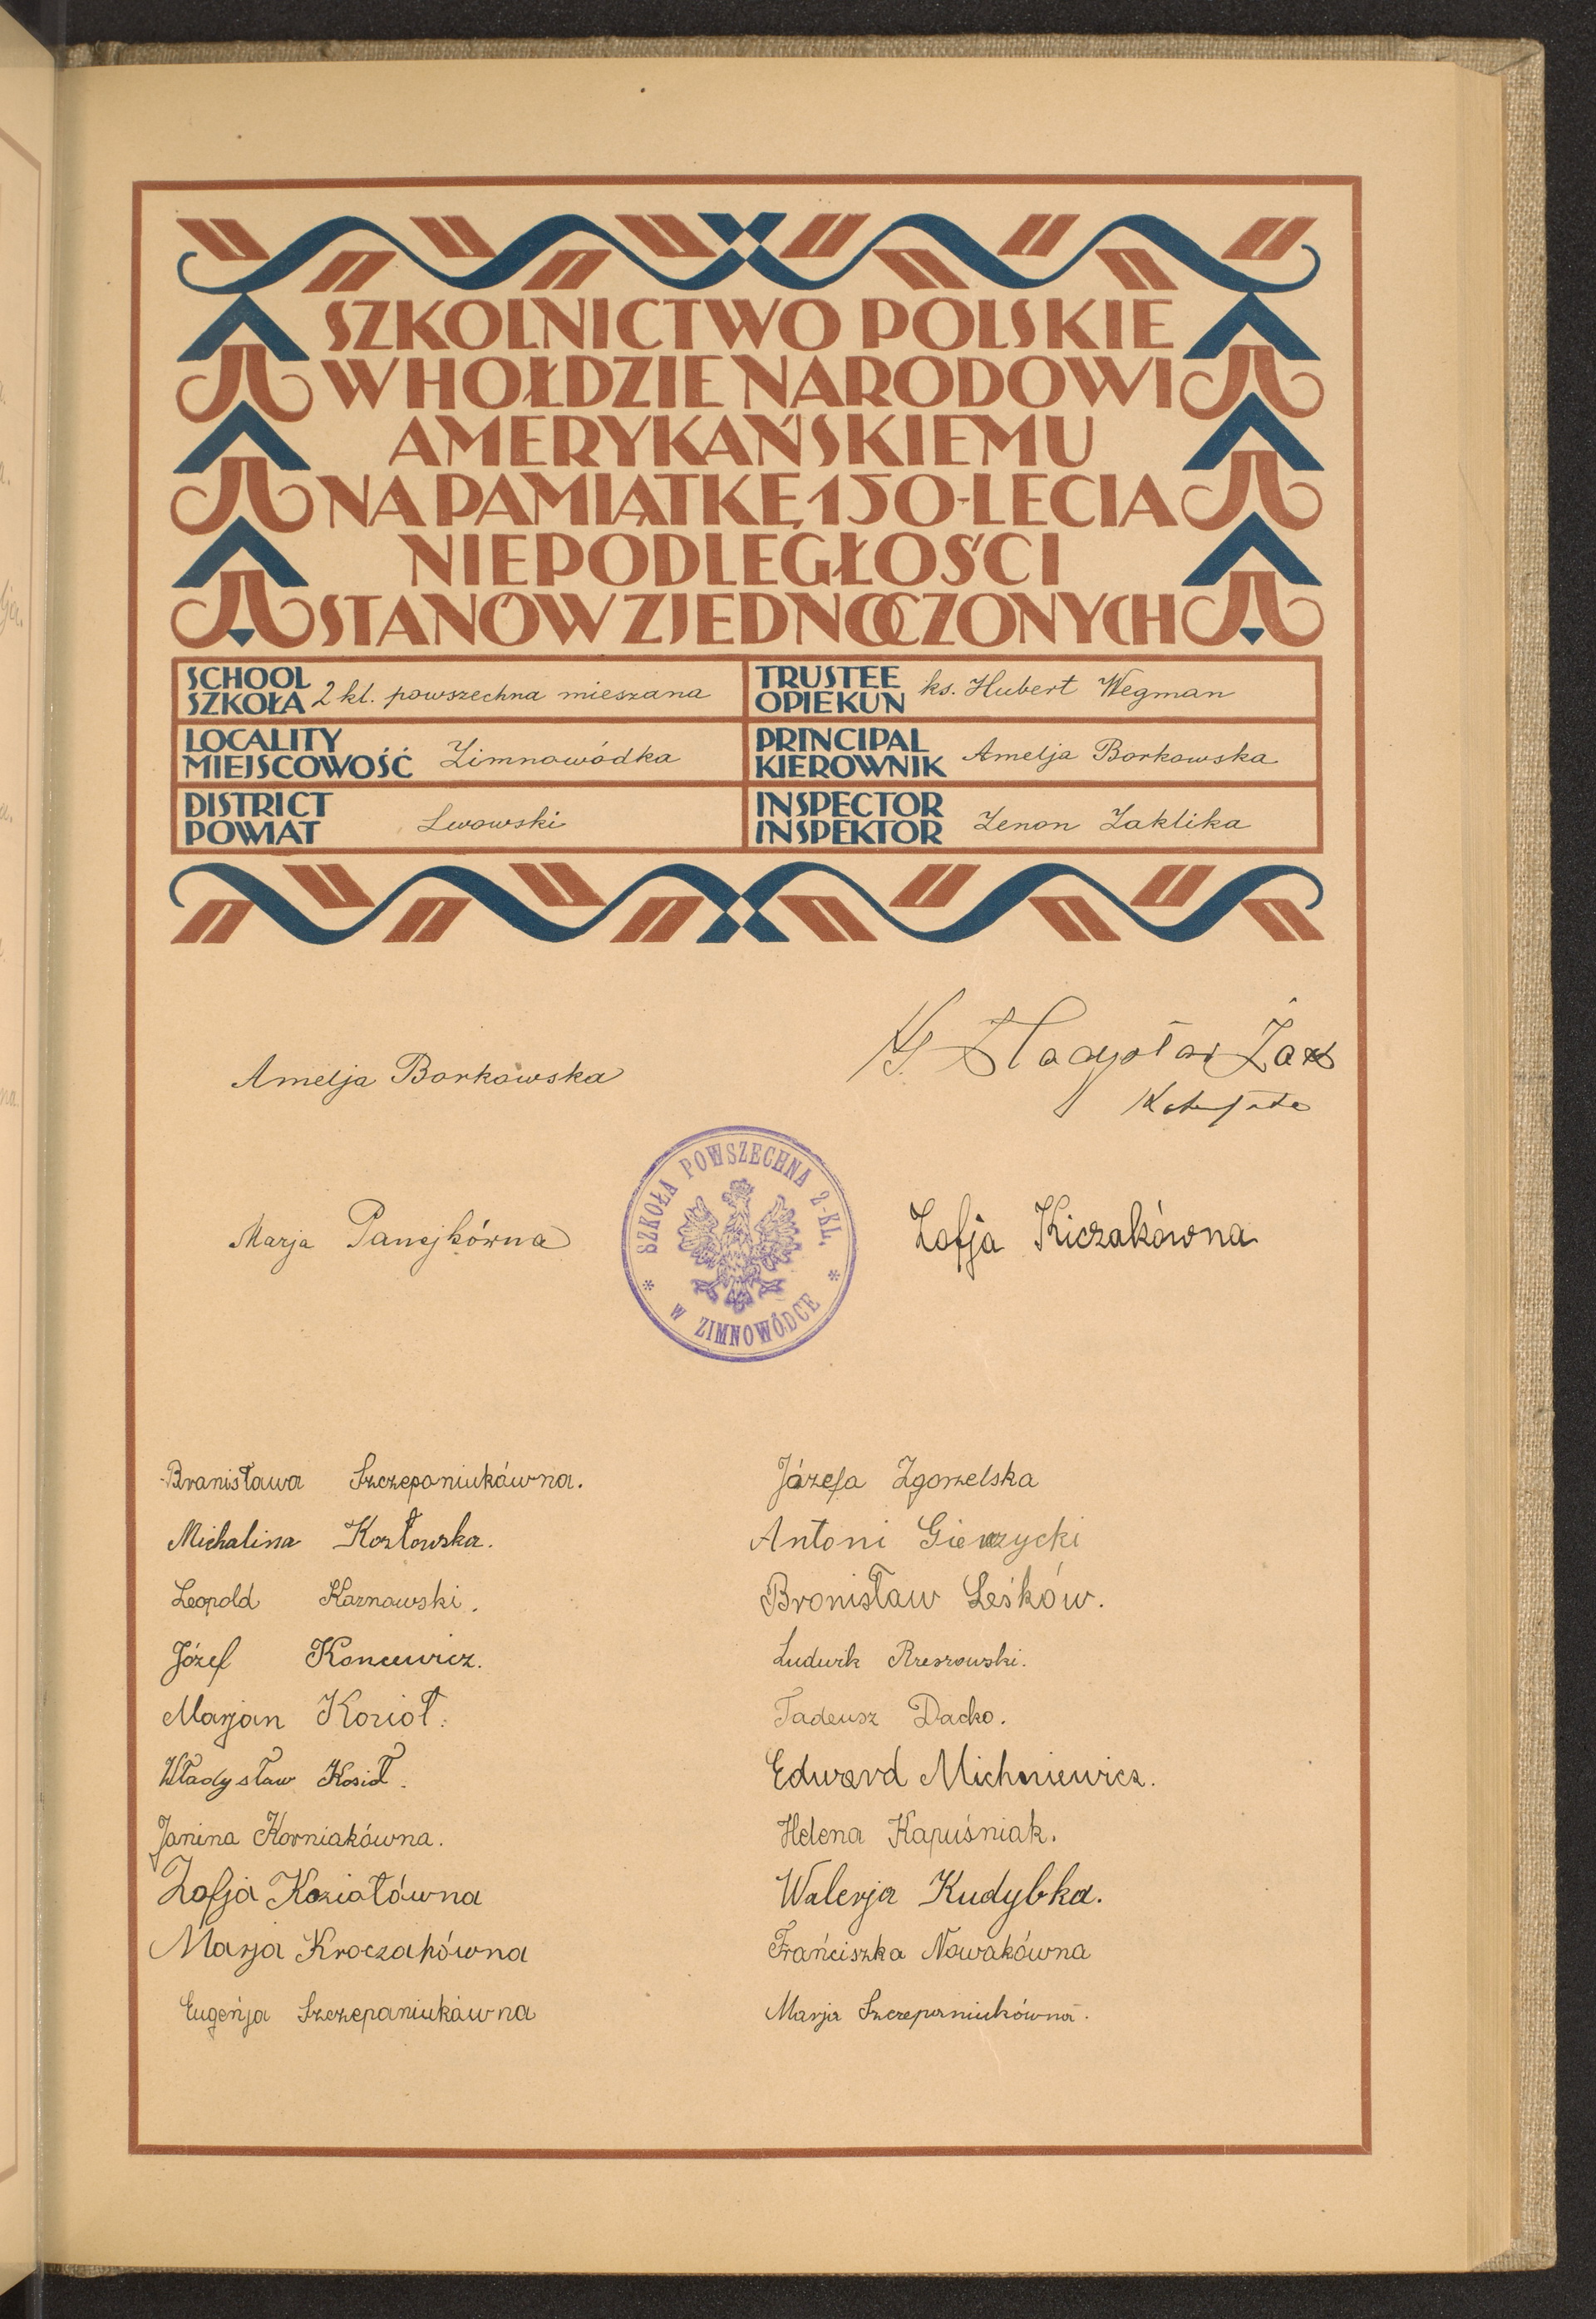 SZKOLNICTWO POLSKIE
W HOŁDZIE NARODOWI
AMERYKAŃSKIEMU
NA PAMIĄTKĘ 150-LECIA
NIEPODLEGŁOŚCI
STANÓW ZJEDNOCZONYCH
SCHOOL
SZKOŁA 2 kl. powszechna mieszana
TRUSTEE
OPIEKUN ks. Hubert Wegman
LOCALITY
MIEJSCOWOŚĆ Zimnowódka
PRINCIPAL
KIEROWNIK Amelja Borkowska
DISTRICT
POWIAT Lwowski
INSPECTOR
INSPEKTOR Zenon Zaklika
Amelja Borkowska
Marja Panejkówna
SZKOŁA POWSZECHNA 2-KL.
* W ZIMNOWÓDCE *
Zofja Kiczakówna
Bronisława Szczepaniukówna.
Michalina Kozłowska.
Leopold Karnowski.
Józef Koncewicz.
Marjan Kozioł.
Władysław Kozioł.
Janina Korniakówna.
Zofja Koziołówna
Marja Kroczakówna
Eugeńja Szczepaniukówna
Józefa Zgorzelska
Antoni
Bronisław Leśków.
Ludwik Rzeszowski.
Tadeusz Dacko.
Edward Michniewicz.
Helena Kapuśniak.
Walerja Kudybka.
Frańciszka Nowakówna
Marja Szczepaniukówna.